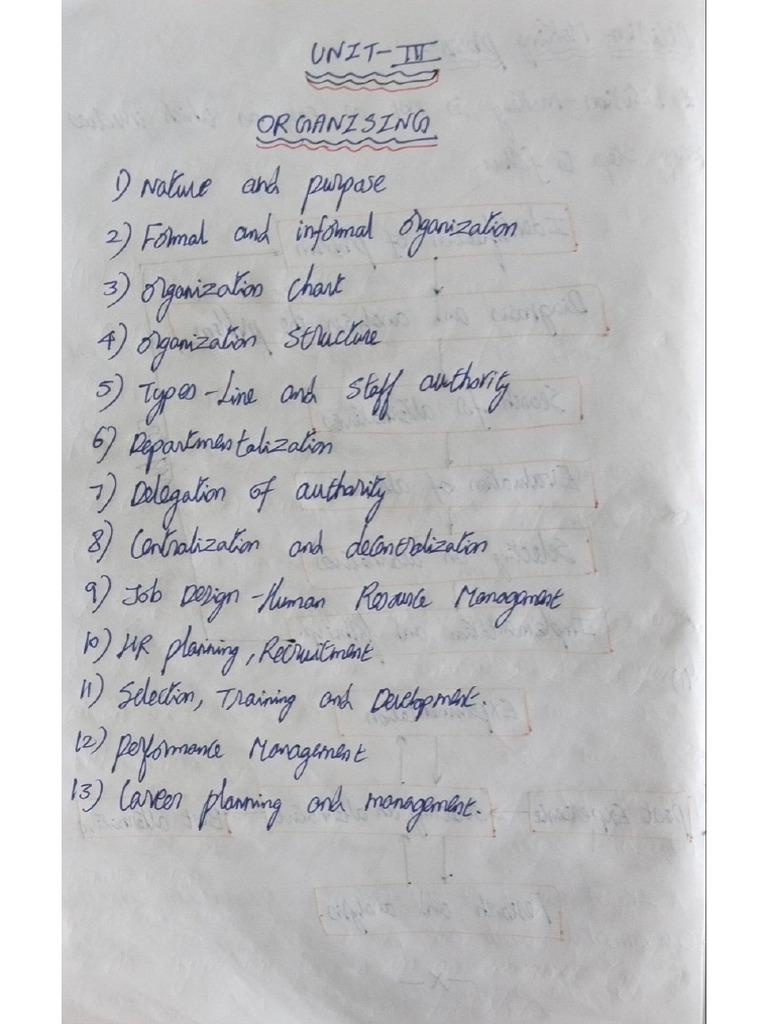 UNIT-III
ORGANISING
1) Nature and purpose
2) Formal and informal organization
3) organization chart
4) organization structure
5) Types-Line and Staff authority
6) Departmentalization
7) Delegation of authority
8) Centralization and decentralization
9) Job Design-Human Resource Management
10) HR planning, Recruitment
11) Selection, Training and Development.
12) performance Management
13) Career planning and management.